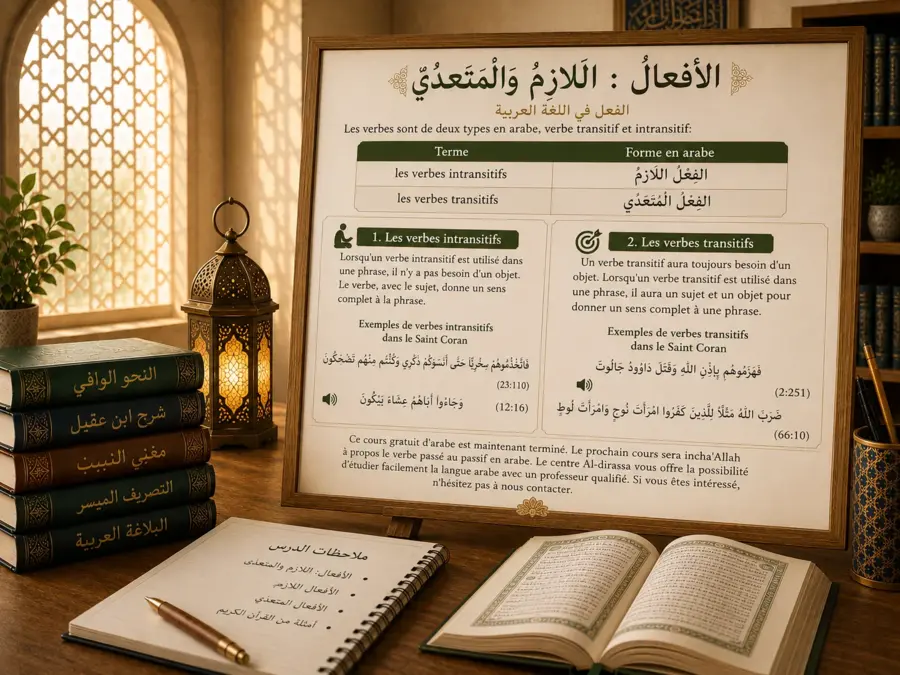 الأفعالُ : اَللازِمُ وَالْمَتَعدُيّ
الفعل في اللغة العربية
Les verbes sont de deux types en arabe, verbe transitif et intransitif:
Terme Forme en arabe
les verbes intransitifs الفِعْلُ اللَازِمُ
les verbes transitifs الفِعْلُ الْمُتَعَدُي
1. Les verbes intransitifs
Lorsqu'un verbe intransitif est utilisé dans
une phrase, il n'y a pas besoin d'un objet.
Le verbe, avec le sujet, donne un sens
complet à la phrase.
Exemples de verbes intransitifs
dans le Saint Coran
فَاتَّخَذُمُوهُمْ سِخْرِيًّا حَتَّى أَنْسَوْكُمْ ذِكْرِي وَكُنْتُم مِنْهُم تَضْحَكُونَ
(23:110)
وَجَاءُوا أَبَاهُمْ عِشَاءً يَبْكُونَ (12:16)
2. Les verbes transitifs
Un verbe transitif aura toujours besoin d'un
objet. Lorsqu'un verbe transitif est utilisé dans
une phrase, il aura un sujet et un objet pour
donner un sens complet à une phrase.
Exemples de verbes transitifs
dans le Saint Coran
فَهَزَمُوهُم بِإِذْنِ اللَّهِ وَقَتَلَ دَاوُودُ جَالُوتَ
(2:251)
ضَرَبَ اللَّهُ مَثَلًا لِلَّذِينَ كَفَرُوا امْرَأَتَ نُوحٍ وَامْرَأَتَ لُوطٍ
(66:10)
Ce cours gratuit d'arabe est maintenant terminé. Le prochain cours sera incha'Allah
à propos le verbe passé au passif en arabe. Le centre Al-dirassa vous offre la possibilité
d'étudier facilement la langue arabe avec un professeur qualifié. Si vous êtes intéressé,
n'hésitez pas à nous contacter.
النحو الوافي
شرح ابن عقيل
مغني النبيب
التصريف الميسر
البلاغة العربية
ملاحظات الدرس
• الأفعال: اللازم والمتعدى
• الأفعال اللازم
• الأفعال المتعدي
• أمثلة من القرآن الكريم